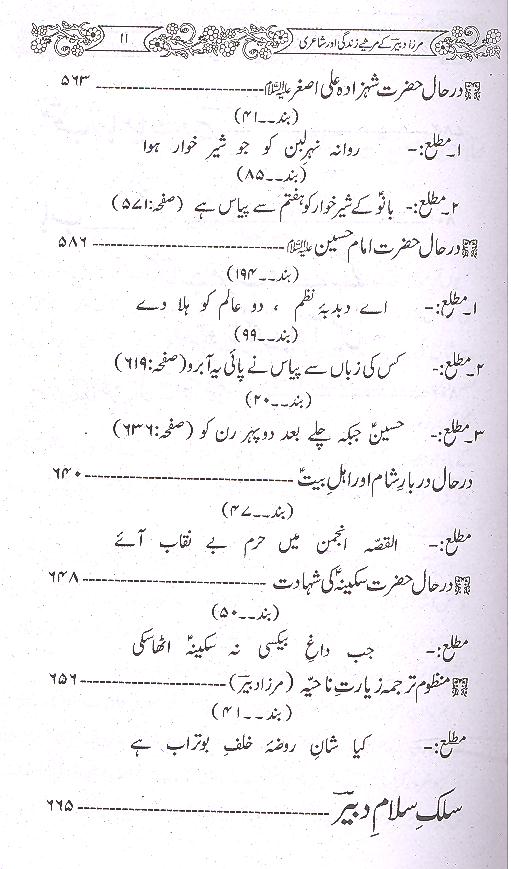 مرزا دبیرؔ کے مرثیے زندگی اور شاعری ۱۱
در حال حضرت شہزادہ علی اصغر علیہ السلام ۵۶۳
(بند۔۔۴۱)
۱۔ مطلع:- روانہ نہرِ لبن کو جو شیر خوار ہوا
(بند۔۔۸۵)
۲۔ مطلع:- بانوؑ کے شیر خوار کو ہفتم سے پیاس ہے (صفحہ:۵۷۱)
در حال حضرت امام حسین علیہ السلام ۵۸۶
(بند۔۔۱۹۴)
۱۔ مطلع:- اے دبدبۂ نظم ، دو عالم کو ہلا دے
(بند۔۔۹۹)
۲۔ مطلع:- کس کی زباں سے پیاس نے پائی یہ آبرو (صفحہ:۶۱۹)
(بند۔۔۲۰)
۳۔ مطلع:- حسینؑ جبکہ چلے بعد دوپہر رن کو (صفحہ:۶۳۶)
در حال دربارِ شام اور اہلِ بیتؑ ۶۴۰
(بند۔۔۴۷)
مطلع:- القصّہ انجمن میں حرم بے نقاب آئے
در حال حضرت سکینہؑ کی شہادت ۶۴۸
(بند۔۔۵۰)
مطلع:- جب داغِ بیکسی نہ سکینہؑ اٹھا سکی
منظوم ترجمہ زیارتِ ناحیّہ (مرزا دبیرؔ) ۶۵۶
(بند۔۔۴۱)
مطلع:- کیا شانِ روضۂ خلفِ بوتراب ہے
سلکِ سلامِ دبیرؔ ۶۶۵